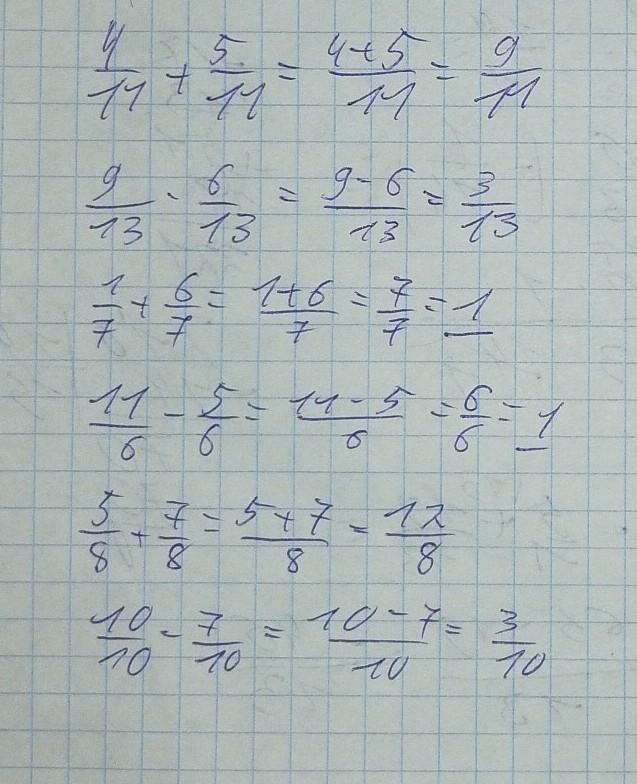 4/11 + 5/11 = 4+5/11 = 9/11
9/13 - 6/13 = 9-6/13 = 3/13
1/7 + 6/7 = 1+6/7 = 7/7 = 1
11/6 - 5/6 = 11-5/6 = 6/6 = 1
5/8 + 7/8 = 5+7/8 = 12/8
10/10 - 7/10 = 10-7/10 = 3/10